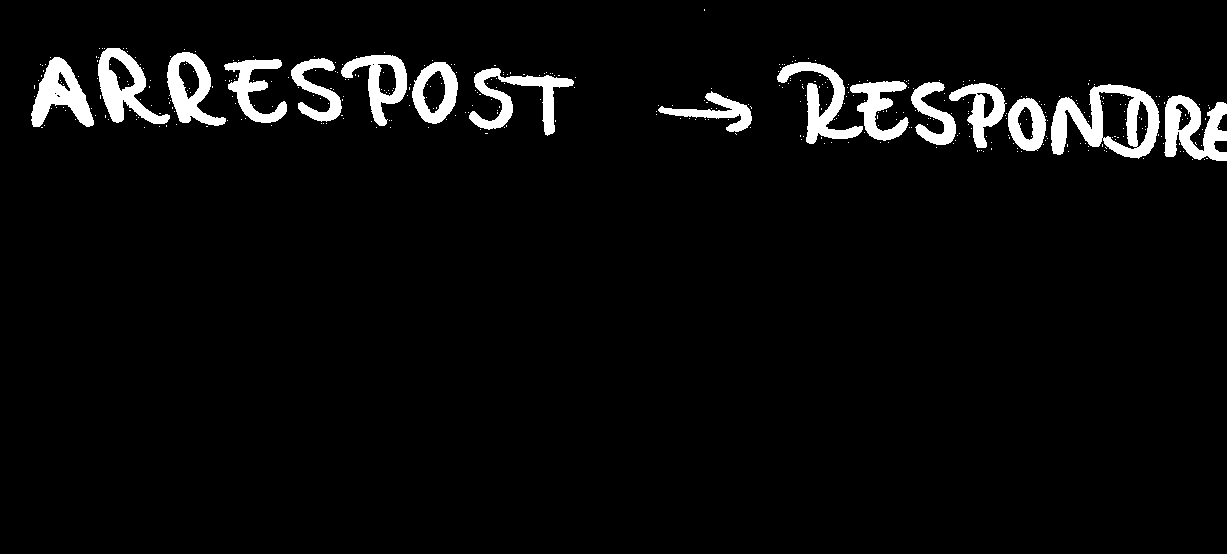 ARRESPOST → RESPONDRE